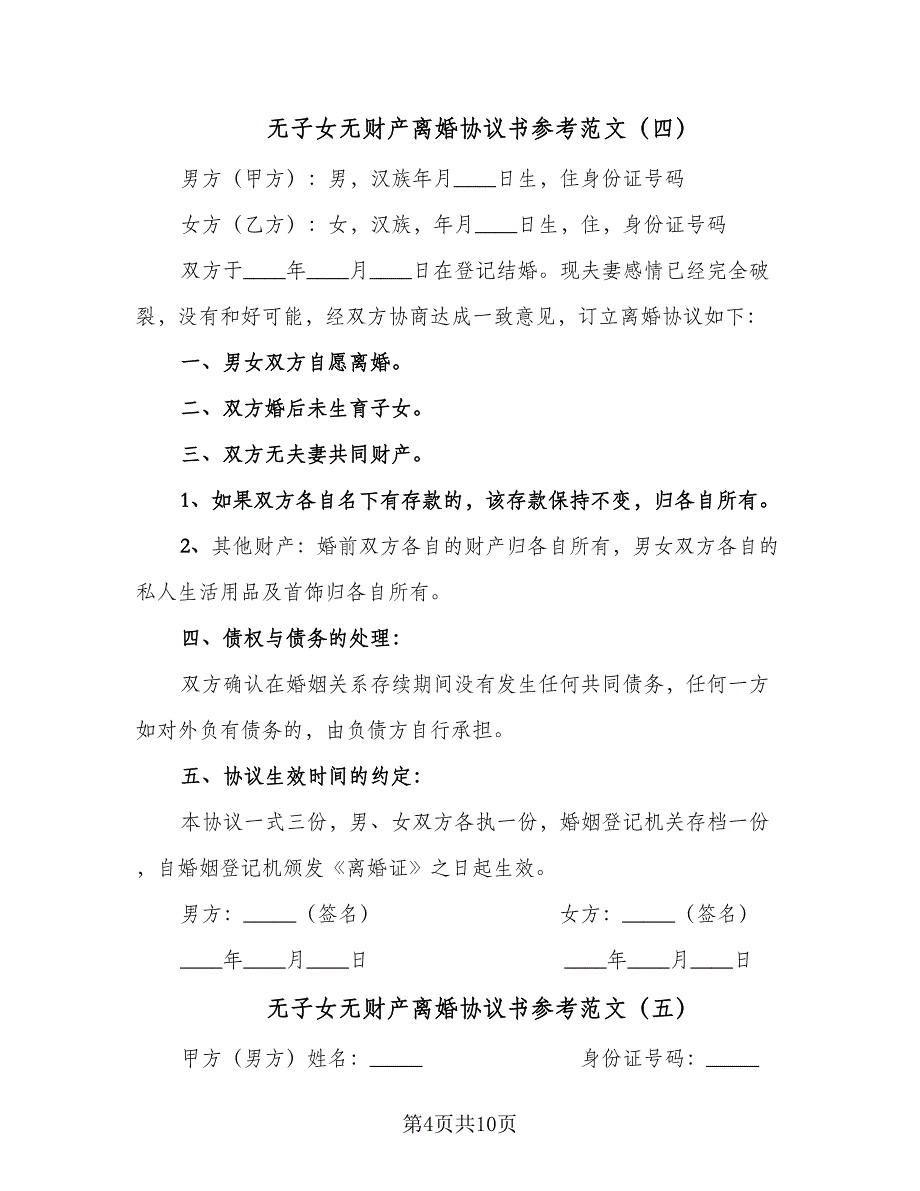 无子女无财产离婚协议书参考范文（四）
男方（甲方）：男，汉族年月____日生，住身份证号码
女方（乙方）：女，汉族，年月____日生，住，身份证号码
双方于____年____月____日在登记结婚。现夫妻感情已经完全破
裂，没有和好可能，经双方协商达成一致意见，订立离婚协议如下：
一、男女双方自愿离婚。
二、双方婚后未生育子女。
三、双方无夫妻共同财产。
1、如果双方各自名下有存款的，该存款保持不变，归各自所有。
2、其他财产：婚前双方各自的财产归各自所有，男女双方各自的
私人生活用品及首饰归各自所有。
四、债权与债务的处理：
双方确认在婚姻关系存续期间没有发生任何共同债务，任何一方
如对外负有债务的，由负债方自行承担。
五、协议生效时间的约定：
本协议一式三份，男、女双方各执一份，婚姻登记机关存档一份
，自婚姻登记机颁发《离婚证》之日起生效。
男方：_____（签名） 女方：_____（签名）
____年____月____日 ____年____月____日
无子女无财产离婚协议书参考范文（五）
甲方（男方）姓名：_____ 身份证号码：_____
第4页共10页